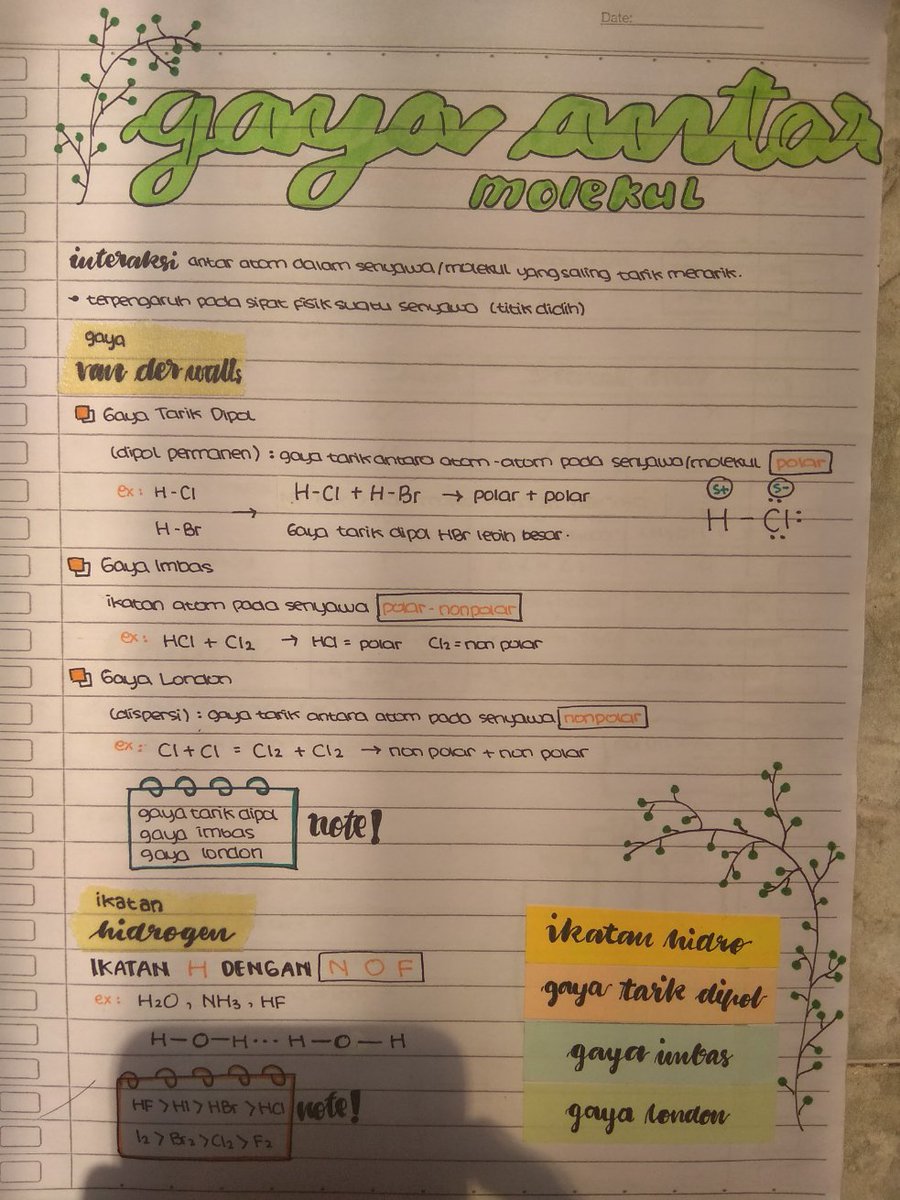 Date:
gaya antar
molekul
interaksi antar atom dalam senyawa/molekul yang saling tarik menarik.
• terpengaruh pada sipat fisik suatu senyawa (titik didih)
gaya
van der walls
Gaya Tarik Dipol
(dipol permanen) : gaya tarik antara atom-atom pada senyawa/molekul polar
ex: H-Cl
H-Br
→ H-Cl + H-Br → polar + polar
Gaya tarik dipol HBr lebih besar.
δ+ δ-
H - Cl
Gaya Imbas
ikatan atom pada senyawa polar-nonpolar
ex: HCl + Cl₂ → HCl = polar Cl₂ = non polar
Gaya London
(dispersi) : gaya tarik antara atom pada senyawa nonpolar
ex: Cl + Cl = Cl₂ + Cl₂ → non polar + non polar
gaya tarik dipol
gaya imbas
gaya london
note!
ikatan
hidrogen
IKATAN H DENGAN N O F
ex: H₂O, NH₃, HF
H-O-H...H-O-H
HF > HI > HBr > HCl
I₂ > Br₂ > Cl₂ > F₂
note!
ikatan hidro
gaya tarik dipol
gaya imbas
gaya london